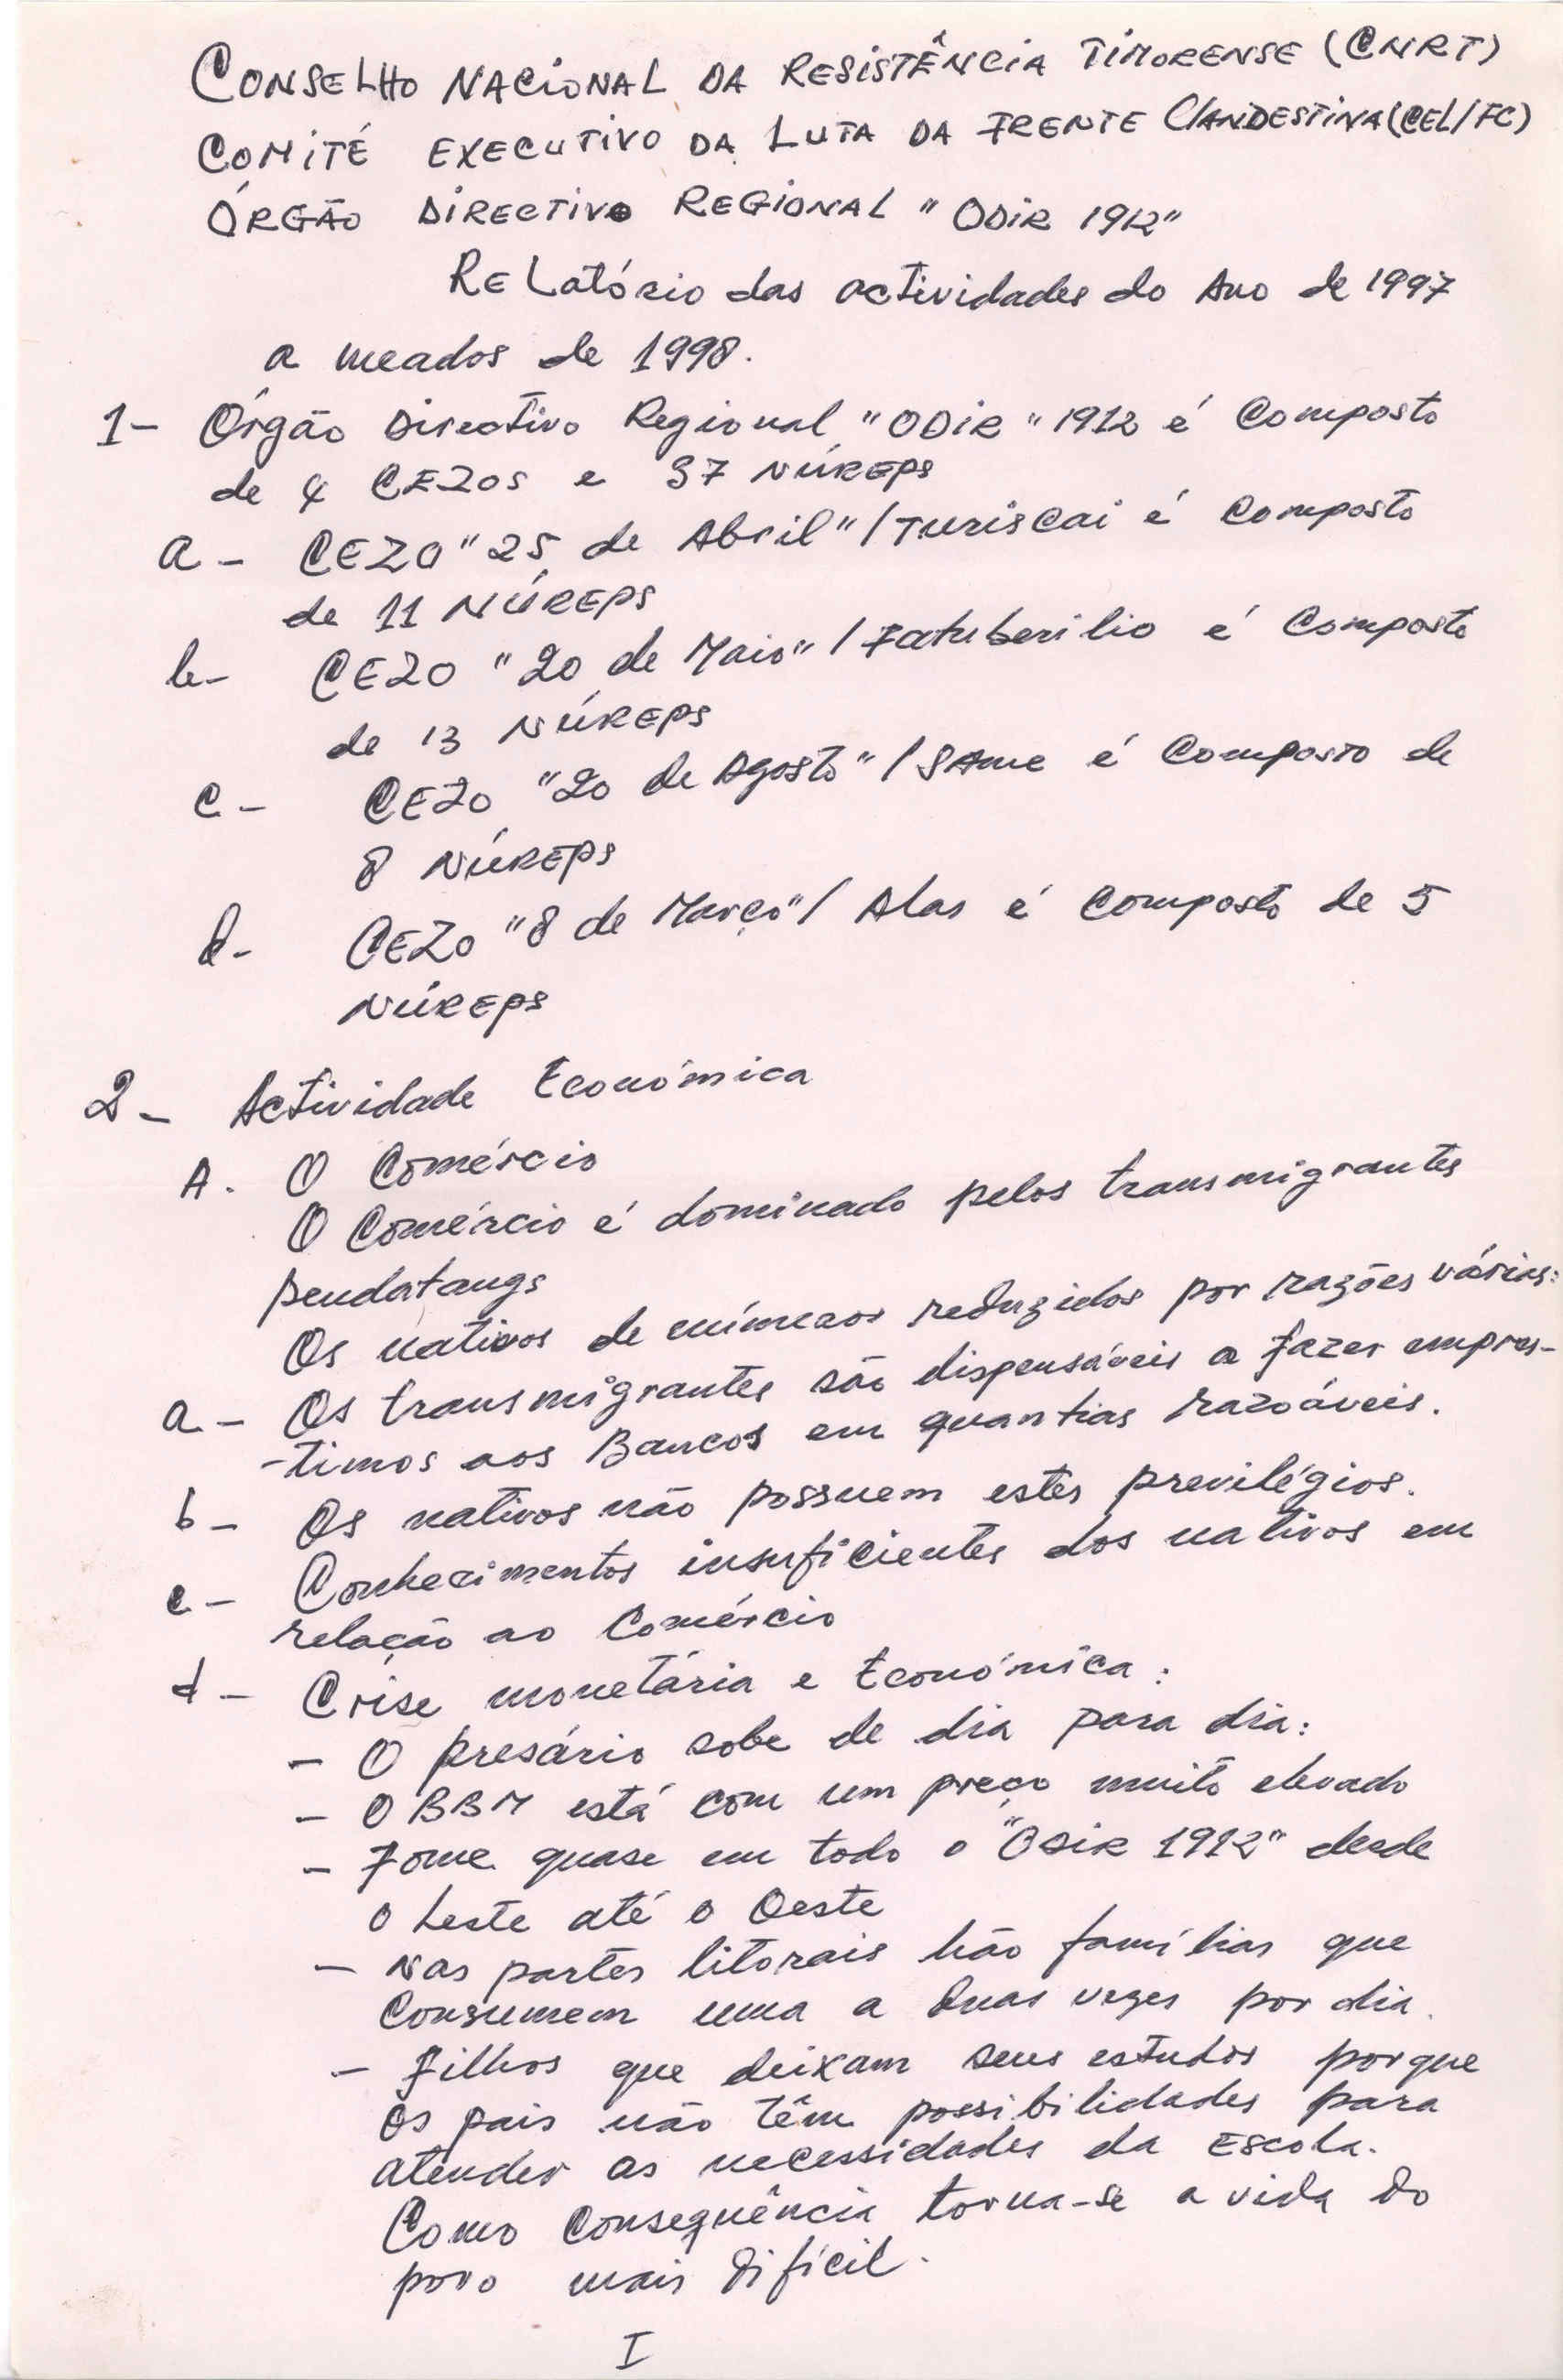 CONSELHO NACIONAL DA RESISTÊNCIA TIMORENSE (CNRT)
COMITÉ EXECUTIVO DA LUTA DA FRENTE CLANDESTINA (CEL/FC)
ÓRGÃO DIRECTIVO REGIONAL "ODIR 1912"
RELatório das actividades do Ano de 1997
a meados de 1998.
1- Órgão Directivo Regional "ODIR" 1912 é Composto
de 4 CEZOS e 37 NÚREPS
a - CEZO "25 de Abril" / Turiscai é Composto
de 11 NÚREPS
b- CEZO "20 de Maio" / Fatuberilio é Composto
de 13 NÚREPS
c - CEZO "20 de Agosto" / SAme é Composto de
8 NÚREPS
d- CEZO "8 de Março" / Alas é Composto de 5
NÚREPS
2 - Actividade Económica
A. O Comércio
O Comércio é dominado pelos transmigrantes
pendatangs
Os nativos de números reduzidos por razões várias:
a - Os transmigrantes são dispensáveis a fazer empres-
-timos aos Bancos em quantias razoáveis.
b - Os nativos não possuem estes previlégios.
c - Conhecimentos insuficientes dos nativos em
relação ao Comércio
d - Crise monetária e Económica:
- O presário sobe de dia para dia:
- O BBM está com um preço muito elevado
- Fome quase em todo o "ODIR 1912" desde
o Leste até o Oeste
- Nas partes litorais hão famílias que
Consumem uma a duas vezes por dia.
- Filhos que deixam seus estudos porque
os pais não têm possibilidades para
atender as necessidades da Escola.
Como Consequência torna-se a vida do
povo mais difícil.
I